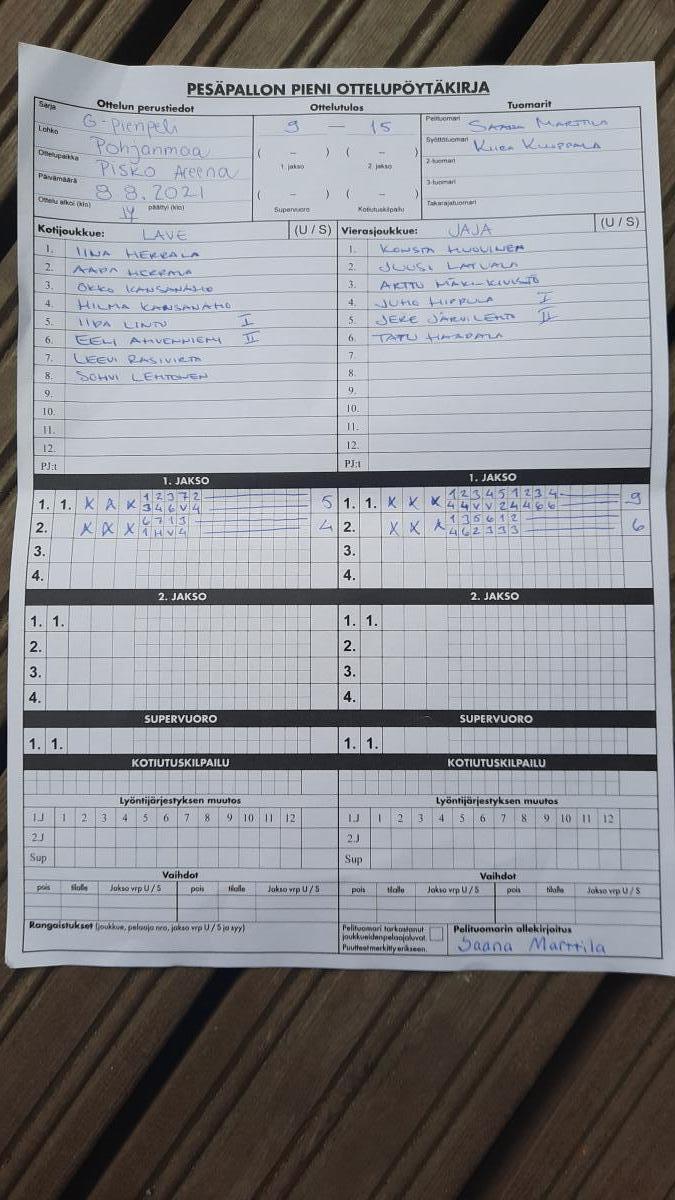 PESÄPALLON PIENI OTTELUPÖYTÄKIRJA
Ottelun perustiedot
Ottelutulos
Tuomarit
Sarja G-pienpeli
Lohko Pohjanmaa
Ottelupaikka Pisko Areena
Päivämäärä 8 8. 2021
Ottelu alkoi (klo) 14 päättyi (klo)
9 — 15
( – ) ( – )
1. jakso 2. jakso
( – ) ( – )
Supervuoro Kotiutuskilpailu
Pelituomari SAANA MARTTILA
Syöttötuomari KIIRA KUUPPALA
2-tuomari
3-tuomari
Takarajatuomari
Kotijoukkue: LAVE (U / S)
1. IINA HERRALA
2. AAPA HERRALA
3. OKKO KANSANAHO
4. HILMA KANSANAHO
5. IIDA LINTU I
6. EELI AHVENNIEMI II
7. LEEVI RASIVIRTA
8. SOHVI LEHTONEN
9.
10.
11.
12.
PJ:t
Vierasjoukkue: JAJA (U / S)
1. KONSTA HUOVINEN
2. JUUSI LATVALA
3. ARTTU MÄKI-KIVISTÖ
4. JUHO HIPPULA I
5. JERE JÄRVILEHTO II
6. TATU HAAPALA
7.
8.
9.
10.
11.
12.
PJ:t
1. JAKSO
1. 1. X X X 1 2 3 7 2 5
3 4 6 V 4
2. X X X 6 7 1 3 4
1 H V 4
3.
4.
1. JAKSO
1. 1. X X X 1 2 3 4 5 1 2 3 4 9
4 4 V V 2 4 4 6 6
2. X X X 1 3 5 6 1 2 6
4 6 2 3 3 3
3.
4.
2. JAKSO
1. 1.
2.
3.
4.
2. JAKSO
1. 1.
2.
3.
4.
SUPERVUORO
1. 1.
SUPERVUORO
1. 1.
KOTIUTUSKILPAILU
KOTIUTUSKILPAILU
Lyöntijärjestyksen muutos
1.J 1 2 3 4 5 6 7 8 9 10 11 12
2.J
Sup
Lyöntijärjestyksen muutos
1.J 1 2 3 4 5 6 7 8 9 10 11 12
2.J
Sup
Vaihdot
pois tilalle Jakso vrp U / S pois tilalle Jakso vrp U / S
Vaihdot
pois tilalle Jakso vrp U / S pois tilalle Jakso vrp U / S
Rangaistukset (joukkue, pelaaja nro, jakso vrp U / S ja syy)
Pelituomari tarkastanut
joukkueidenpelaajaluvat.
Puutteet merkitty erikseen.
Pelituomarin allekirjoitus
Saana Marttila